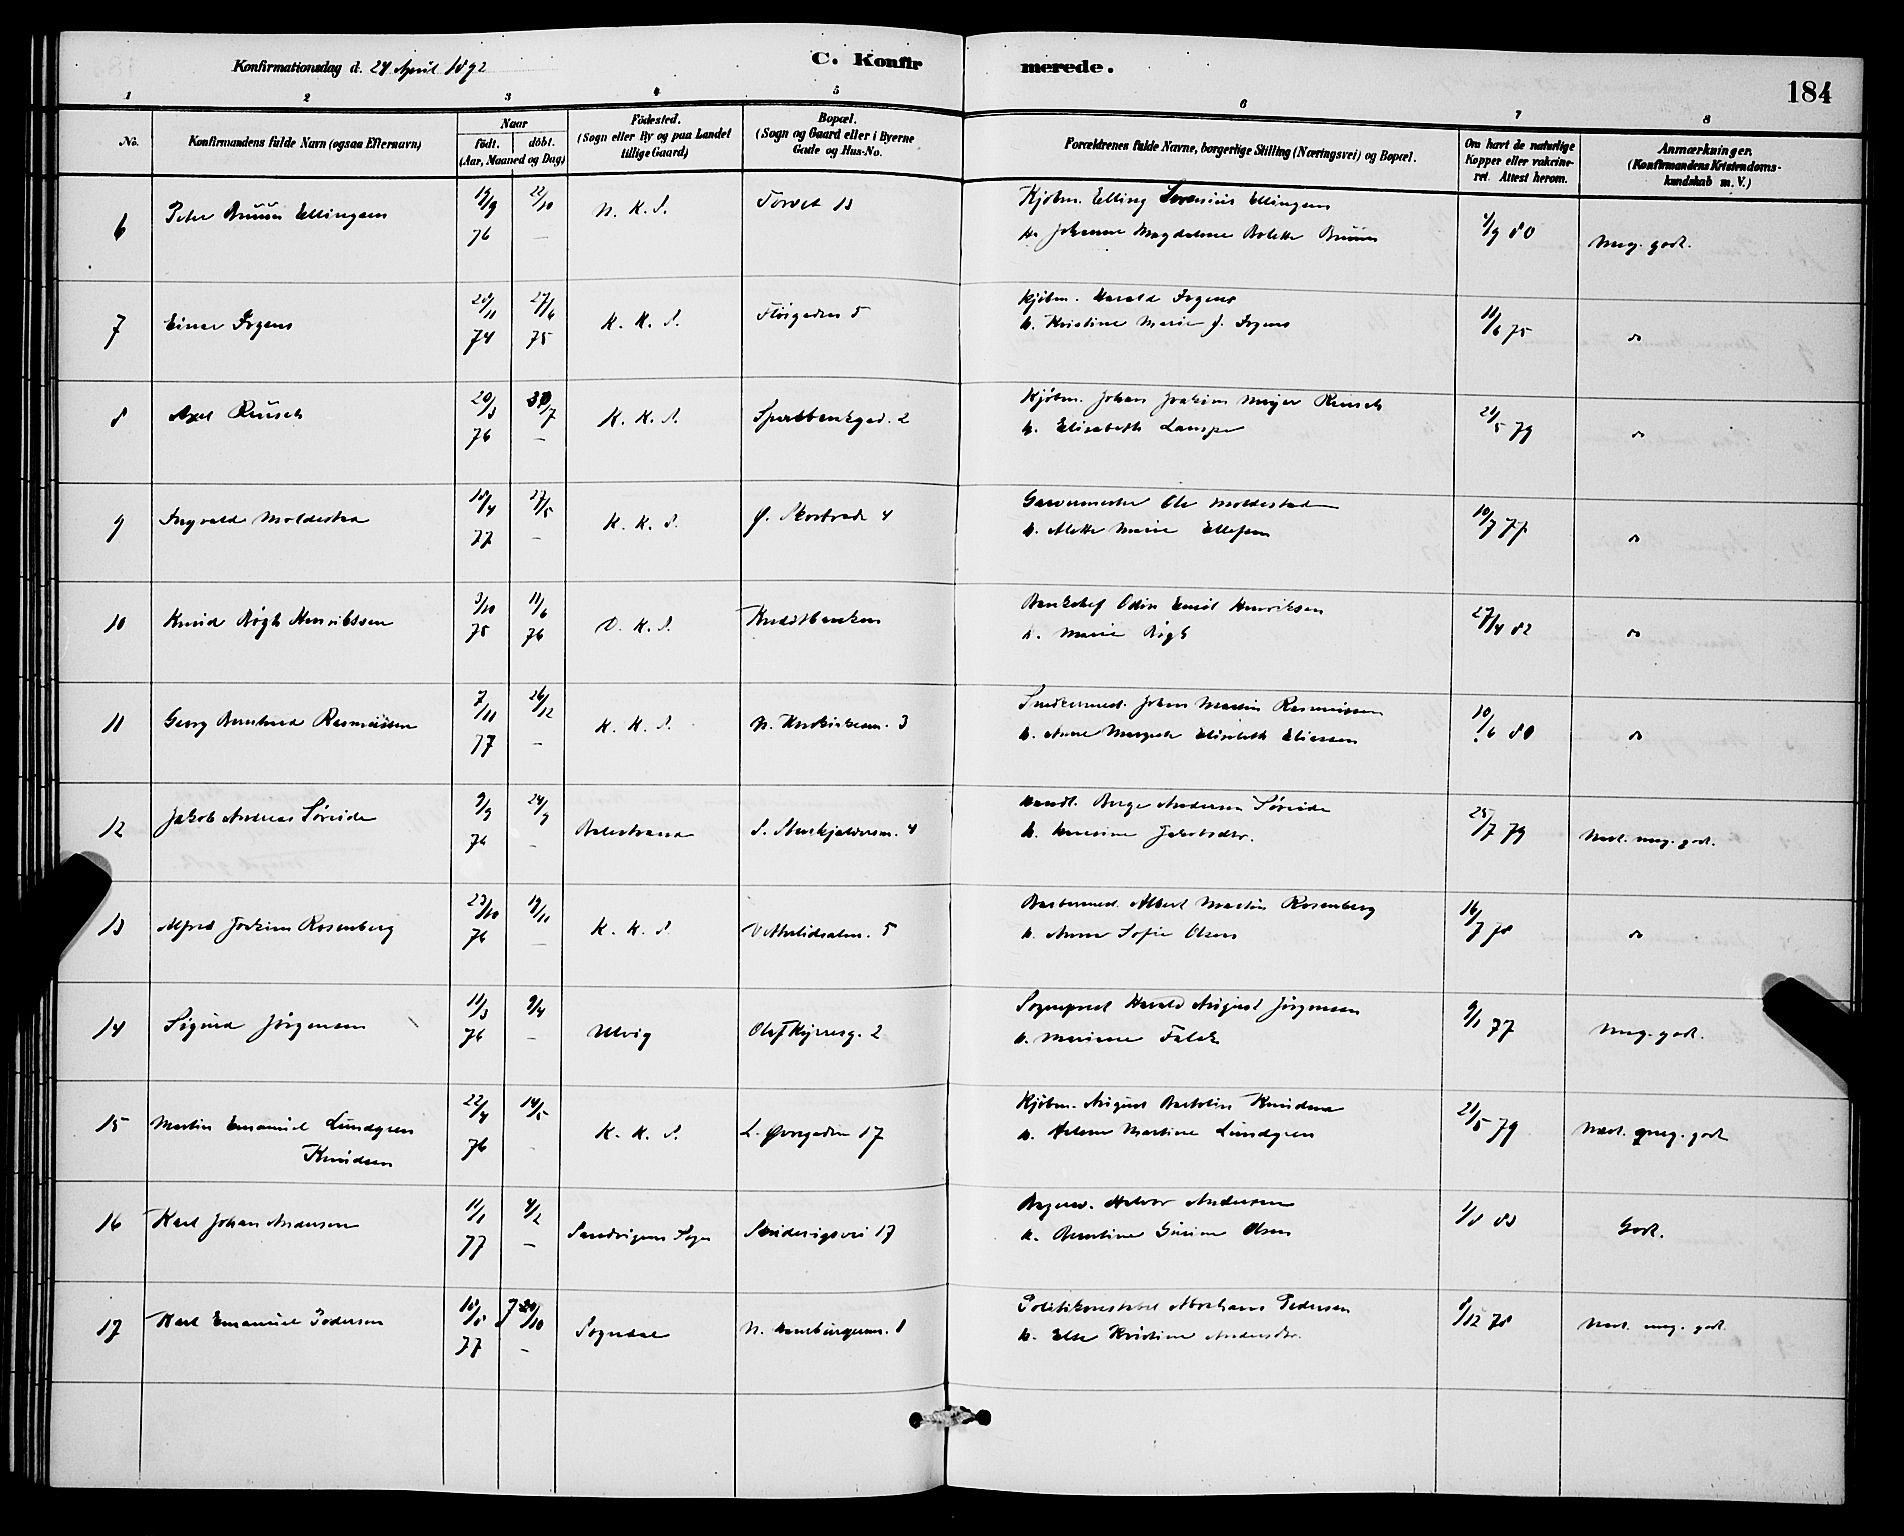 Konfirmationsdag d. 24 April 1892
C. Konfir merede.
184
1 2 3 4 5 6 7 8
No.
Konfirmandens fulde Navn (ogsaa Efternavn)
Naar
födt. döbt.
(Aar, Maaned og Dag)
Födested.
(Sogn eller By og paa Landet
tillige Gaard)
Bopæl.
(Sogn og Gaard eller i Byerne
Gade og Hus-No.
Forældrenes fulde Navne, borgerlige Stilling (Næringsvei) og Bopæl.
Om havt de naturlige
Kopper eller vakcine-
ret. Attest herom.
Anmærkninger.
(Konfirmandens Kristendoms-
kundskab m. V.)
6 Peter Bruun Ellingsen 19/9 76 22/10 — N. K. S. Torvet 13
Kjøbm. Elling Severinius Ellingsen
H. Johanne Magdalene Bolette Bruun
4/9 80 Meg. godt.
7 Einar Irgens 28/11 74 27/6 75 K. K. S. Fløigaden 5
Kjøbm. Harald Irgens
h. Kristine Marie f. Irgens
11/6 75 do
8 Axel Reusch 20/3 76 30/7 — K. K. S. Sparebankgad. 2
Kjøbm. Johan Joakim Meyer Reusch
h. Elisabeth Lampe
21/5 79 do
9 Ingvald Moldestad 18/4 77 27/5 — K. K. S. Ø. Skostræde 4
Garvermester Ole Moldestad
h. Alette Marie Ellefsen
10/7 77 do
10 Knud Bøgh Henrikssen 3/10 75 11/6 76 D. K. S. Kreditbanken
Bankchef Odin Emil Henriksen
h. Marie Bøgh
27/4 82 do
11 Georg Bernhard Rasmussen 7/11 77 26/12 — K. K. S. N. Korskirkealm. 3
Snedkermest. Johan Martin Rasmussen
h. Anne Margrete Elisabeth Eliassen
10/6 80 do
12 Jakob Andreas Søreide 9/9 76 24/9 — Balestrand S. Stenkjeldersm. 4
Handl. Berge Andersen Søreide
h. Jakobsdtr.
25/7 79 Næst. meg. godt.
13 Alfred Joakim Rosenberg 23/10 76 19/11 — K. K. S. 5
Barbermest. Albert Martin Rosenberg
h. Anne Sofie Olsen
16/7 78 do
14 Sigurd Jørgensen 11/3 76 9/4 — Ulvig Olaf Kyrresg. 2
Sognepræst Harald August Jørgensen
h. Mariane Falck
9/1 77 Meg. godt.
15 Martin Emanuel Lundgren
Knudsen
22/4 76 14/5 - K. K. S. L. Øvregaden 17
Kjøbm. August Bertolin Knudsen
h. Helene Martine Lundgren
21/5 79 Næst. meg. godt
16 Karl Johan Andersen 11/1 77 4/2 — Sandvigens Sogn Skudevigsvei 17
Halvor Andersen
h. Berntine Gurine Olsen
1/8 83 Godt.
17 Karl Emanuel Pedersen 18/8 77 20/10 - Sogndal N. Hamburgersm. 8
Politikonstabel Abraham Pedersen
h. Else Kristine Andersdtr.
8/12 78 Næst. meg. godt.